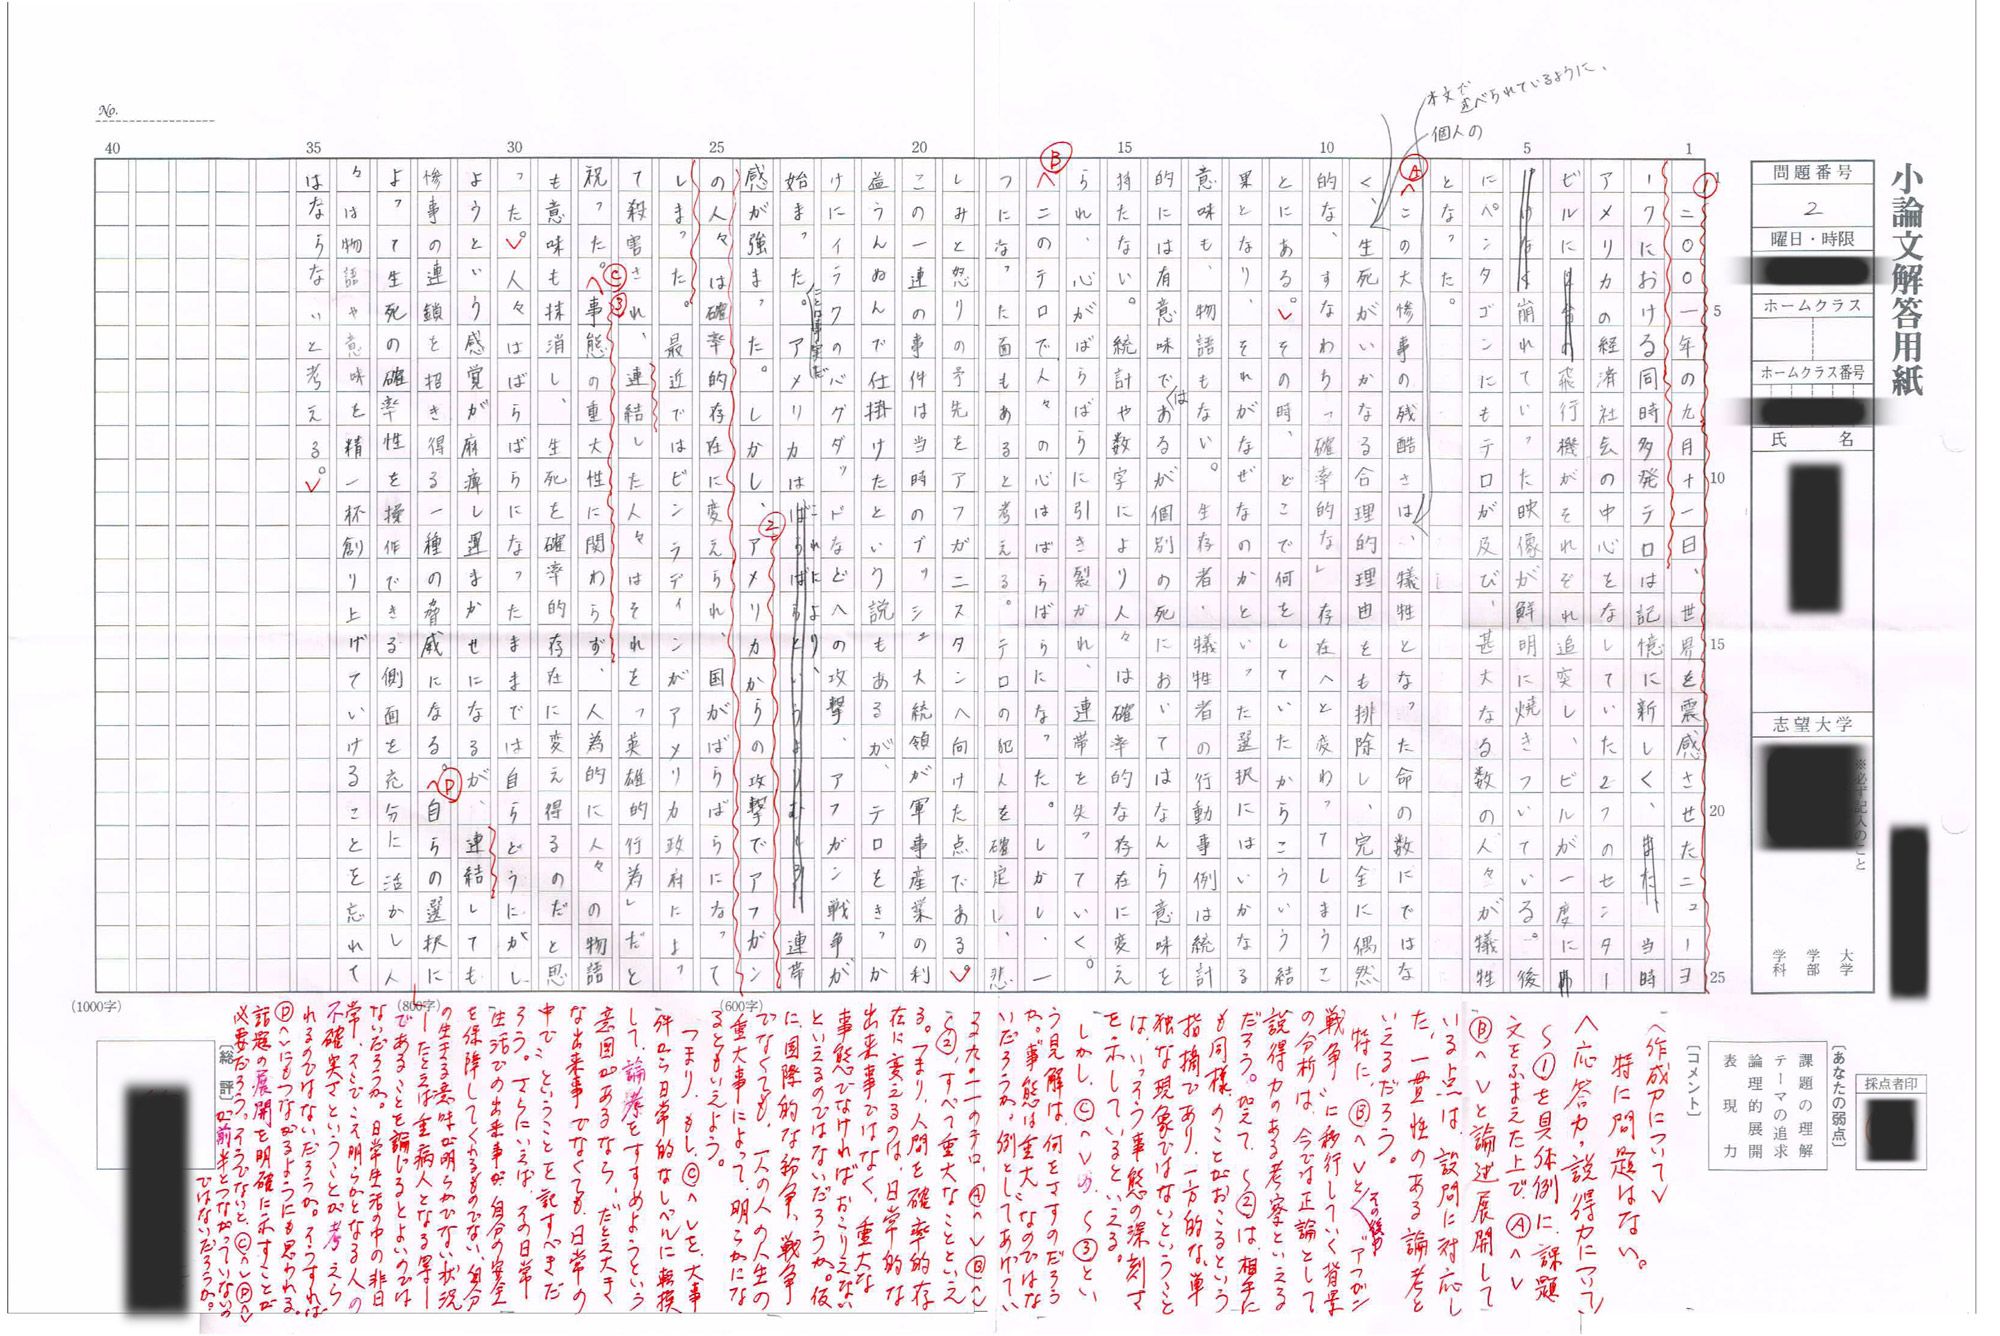 小論文解答用紙
問題番号
2
曜日・時限
ホームクラス
ホームクラス番号
氏 名
志望大学
※必ず記入のこと
大学
学部
学科
No.
1 5 10 15 20 25 30 35 40
1
5
10
15
20
25
本文で
述べられているように、
個人の
①
二〇〇一年の九月十一日、世界を震感させたニューヨ
ークにおける同時多発テロは記憶に新しく、また当時
アメリカの経済社会の中心をなしていた2つのセンター
ビルに飛行機がそれぞれ追突し、ビルが一度に
崩れていった映像が鮮明に焼きついている。後
にペンタゴンにもテロが及び、甚大なる数の人々が犠牲
となった。
Ⓐ
この大惨事の残酷さは、犠牲となった命の数にではな
く、生死がいかなる合理的理由をも排除し、完全に偶然
的な、すなわち「確率的な」存在へと変わってしまうこ
とにある。その時、どこで何をしていたからこういう結
果となり、それがなぜなのかといった選択にはいかなる
意味も、物語もない。生存者、犠牲者の行動事例は統計
的には有意味であるが個別の死においてはなんら意味を
は
持たない。統計や数字により人々は確率的な存在に変え
られ、心がばらばらに引き裂かれ、連帯を失っていく。
Ⓑ
このテロで人々の心はばらばらになった。しかし、一
つになった面もあると考える。テロの犯人を確定し、悲
しみと怒りの予先をアフガニスタンへ向けた点である。
この一連の事件は当時のブッシュ大統領が軍事産業の利
益うんぬんで仕掛けたという説もあるが、テロをきっか
けにイラクのバグダッドなどへの攻撃、アフガン戦争が
ことは事実だ
始まった。アメリカはばらばらというよりむしろ連帯
これにより、
感が強まった。しかし、アメリカからの攻撃でアフガン
②
の人々は確率的存在に変えられ、国がばらばらになって
しまった。最近ではビンラディンがアメリカ政府によっ
て殺害され、連結した人々はそれを「英雄的行為」だと
Ⓒ
③
祝った。事態の重大性に関わらず、人為的に人々の物語
も意味も抹消し、生死を確率的存在に変え得るのだと思
った。人々はばらばらになったままでは自らどうにかし
ようという感覚が麻痺し運まかせになるが、連結しても
惨事の連鎖を招き得る一種の脅威になる。自らの選択に
Ⓓ
よって生死の確率性を操作できる側面を充分に活かし人
々は物語や意味を精一杯創り上げていけることを忘れて
はならないと考える。
(600字)
(800字)
(1000字)
採点者印
〔あなたの弱点〕
課題の理解
テーマの追求
論理的展開
表現力
〔コメント〕
〈作成力について〉
特に問題はない。
〈応答力、説得力について〉
〜①を具体例に、課題
文をふまえた上で、Ⓐへ
Ⓑへと論述展開して
いる点は、設問に対応し
た、一貫性のある論考と
いえるだろう。
特に、Ⓑへと、その後の“アフガン
戦争”に移行していく背景
の分析は、今では正論として
説得力のある考察といえる
だろう。加えて、〜②は、相手に
も同様のことがおこるという
指摘であり、一方的な、単
独な現象ではないということ
は、いっそう事態の深刻さ
を示しているといえる。
しかし、Ⓒへの、〜③とい
う見解は、何をさすのだろう
か。“事態は重大”なのではな
いだろうか。例としてあげてい
る九・一一のテロ、Ⓐへ、Ⓑへ
〜②、すべて重大なことといえ
る。つまり、人間を確率的存
在に変えるのは、日常的な
出来事ではなく、重大な
事態でなければおこりえない
といえるのではないだろうか。仮
に、国際的な紛争、戦争
でなくても、一人の人の人生の
重大事によって、明らかにな
るともいえよう。
つまり、もし、Ⓒへを、大事
件から日常的なレベルに転換
して、論考をすすめようという
意図があるなら、“だと大きさ
な出来事でなくても、日常の
中で”ということを記すべきだ
ろう。さらにいえば、その日常
生活での出来事が、自分の安全
を保障してくれるものでない、自分
の生きる意味が明らかでない状況
―たとえば重病人となる等―
であることを論じるとよいのでは
ないだろうか。日常生活の中の非日
常、そこでこそ明らかとなる人の
不確実さということが考えら
れるのではないだろうか。そうすれば
Ⓓへにもつながるようにも思われる。
話題の展開を明確に示すことが
必要だろう。そうでないと、Ⓒへ、Ⓓへ
が前半とつながっていないの
ではないだろうか。
〔総評〕